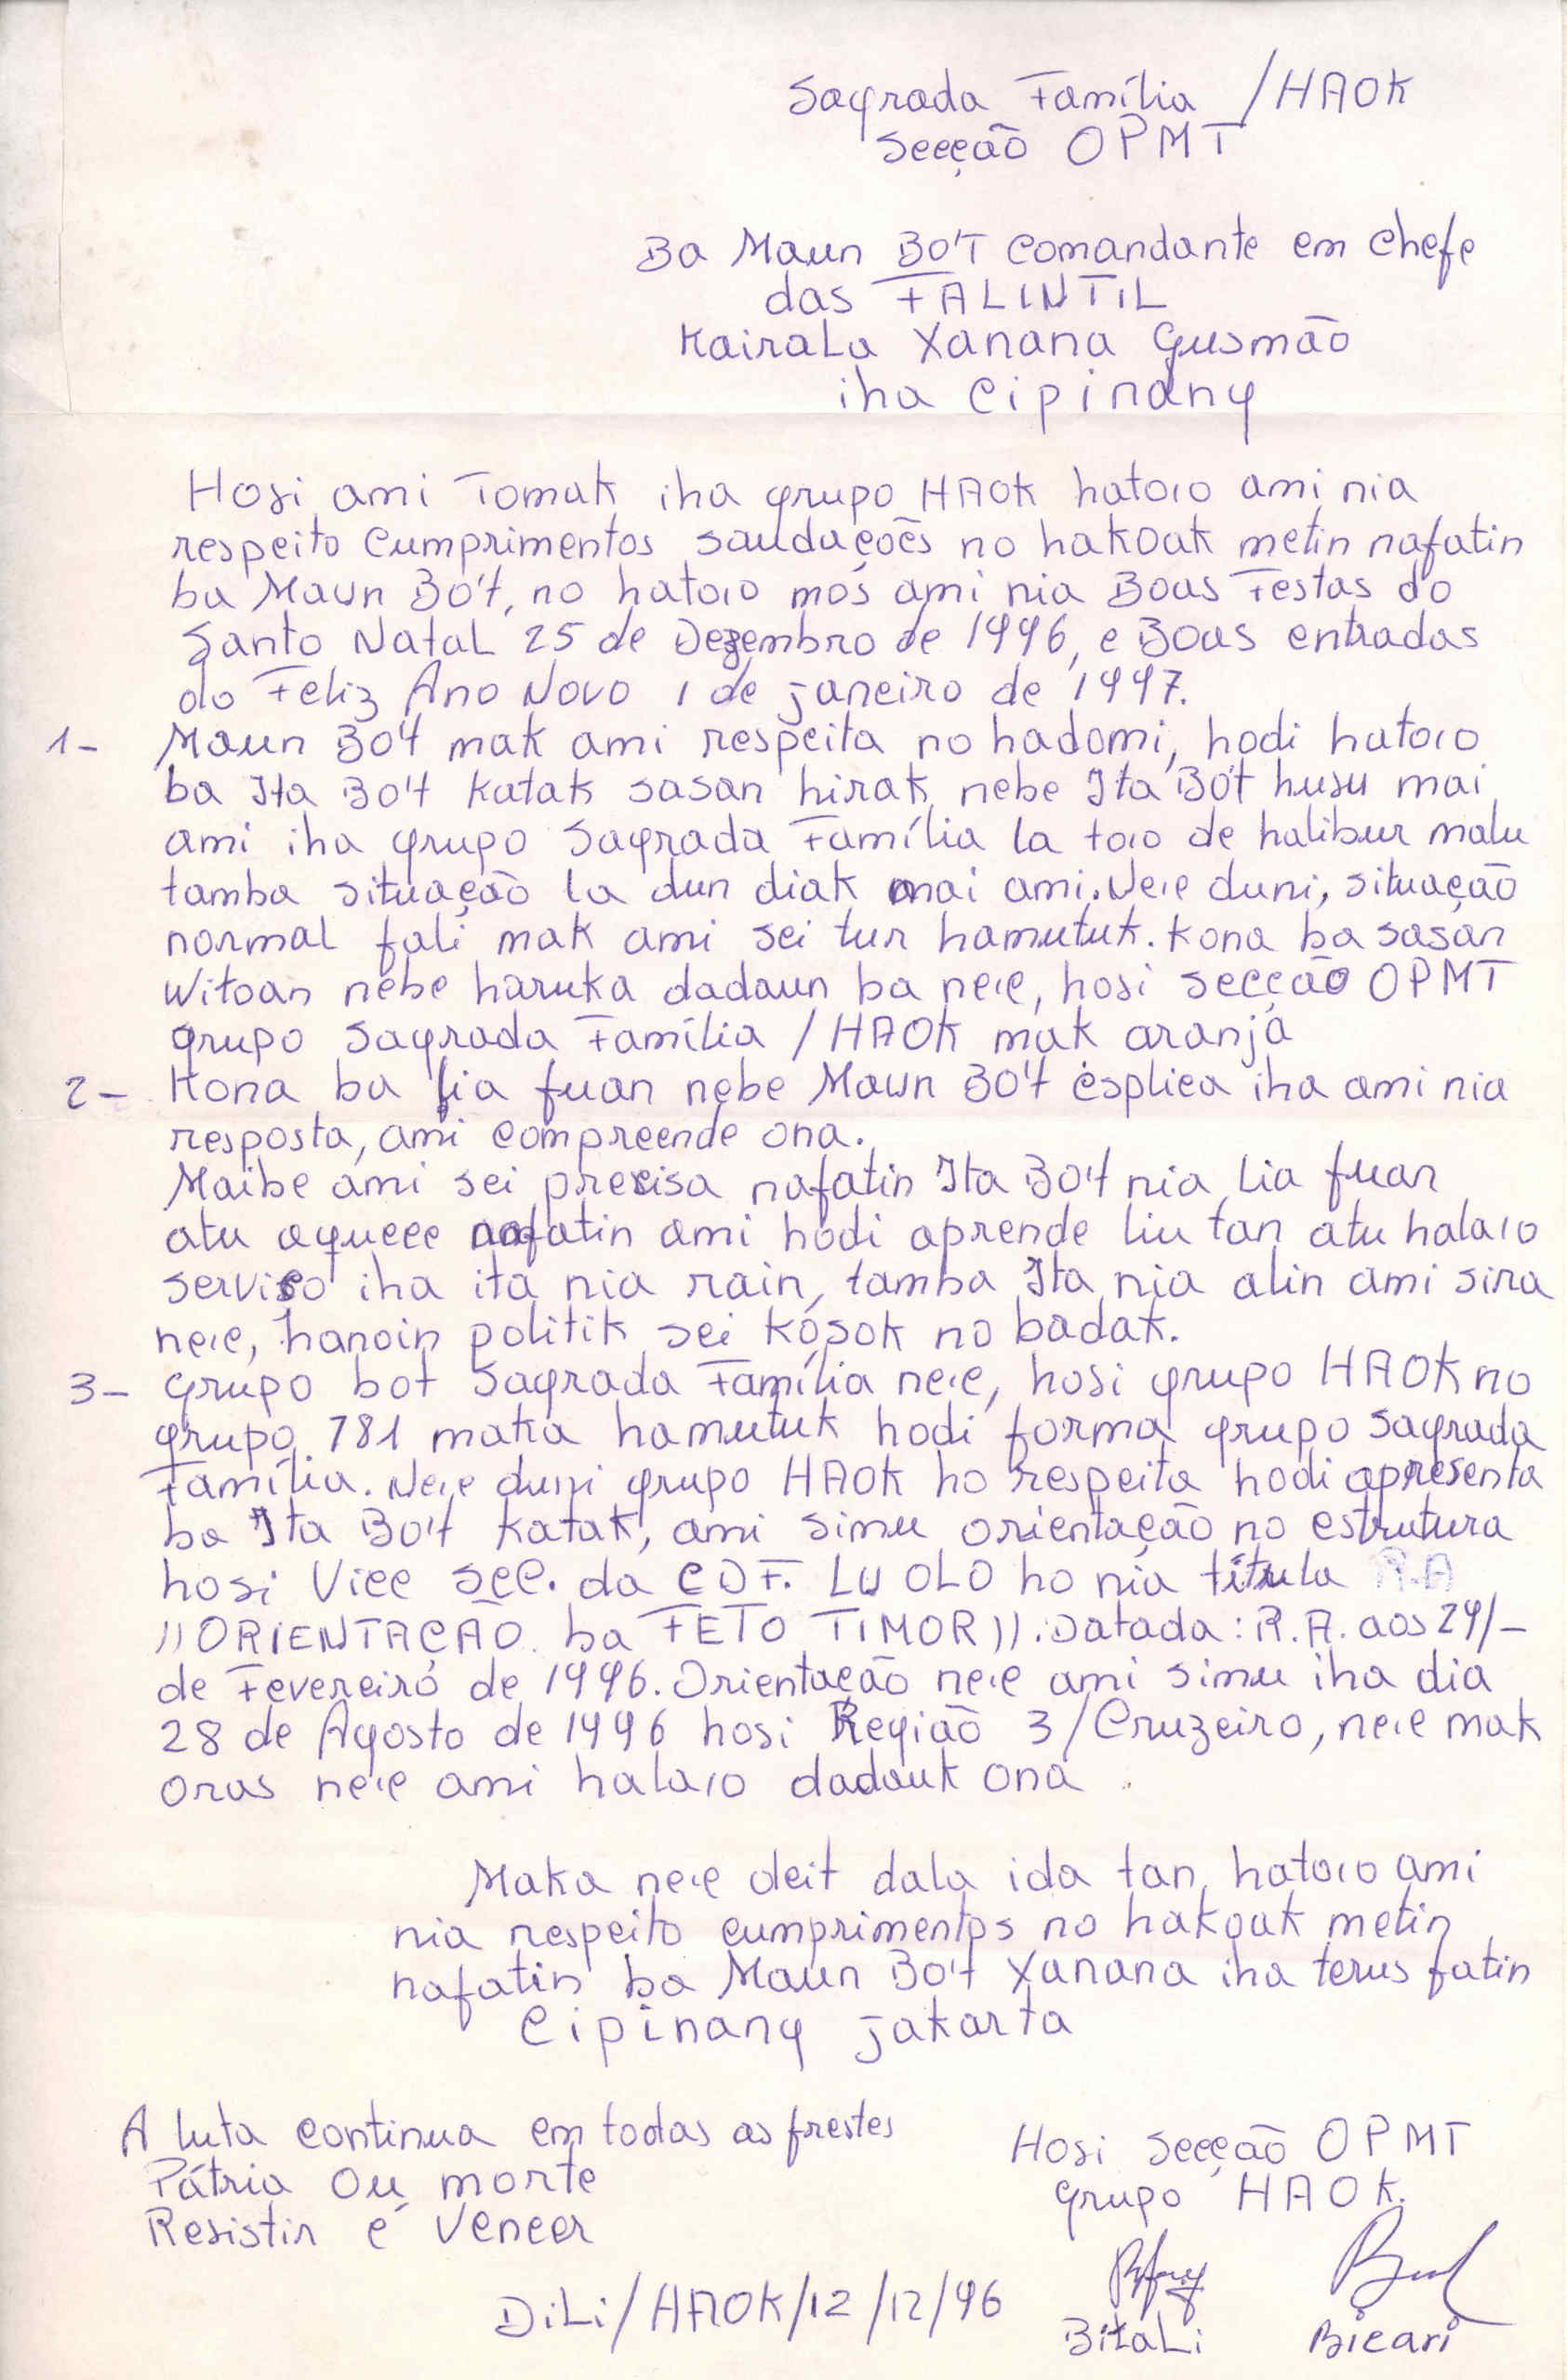 Sagrada Família /HAOK
Secção OPMT
Ba Maun BO'T Comandante em Chefe
das FALINTIL
KairaLa Xanana Gusmão
iha Cipinany
Hosi ami Tomak iha grupo HAOK hato'o ami nia
respeito Cumprimentos saudações no hakoak metin nafatin
ba Maun Bo't, no hato'o mós ami nia Boas Festas do
Santo Natal 25 de Dezembro de 1996, e Boas entradas
do Feliz Ano Novo 1 de janeiro de 1997.
1- Maun Bo't mak ami respeita no hadomi, hodi hato'o
ba Ita Bo't katak sasan hirak nebe Ita Bo't husu mai
ami iha grupo Sagrada Família la to'o de halibur malu
tamba situação la dun diak mai ami. Ne'e duni, situação
normal fali mak ami sei tur hamutuk. Kona ba sasan
Witoan nebe haruka dadaun ba ne'e, hosi secção OPMT
grupo Sagrada Família /HAOK mak aranja
2- Kona ba lia fuan nebe Maun Bo't esplica iha ami nia
resposta, ami compreende ona.
Maibe ami sei precisa nafatin Ita Bo't nia lia fuan
atu aquece nafatin ami hodi aprende liu tan atu hala'o
serviso iha ita nia rain, tamba Ita nia alin ami sira
ne'e, hanoin politik sei kósok no badak.
3- Grupo bot Sagrada Família ne'e, hosi grupo HAOK no
grupo 781 maka hamutuk hodi forma grupo Sagrada
Família. Ne'e duni grupo HAOK ho respeita hodi apresenta
ba Ita Bo't katak, ami simu orientação no estrutura
hosi Vice Sec. da CDF. LU OLO ho nia titula R.A
"ORIENTAÇÃO ba FETO TIMOR". Datada: R.A. aos 29/-
de Fevereiro de 1996. Orientação ne'e ami simu iha dia
28 de Agosto de 1996 hosi Região 3/Cruzeiro, ne'e mak
oras ne'e ami hala'o dadauk ona.
Maka ne'e deit dala ida tan, hato'o ami
nia respeito cumprimentos no hakoak metin
nafatin ba Maun Bo't Xanana iha terus fatin
Cipinany jakarta
A luta continua em todas as frestes
Pátria ou morte
Resistir é Vencer
Hosi Secção OPMT
Grupo HAOK.
DiLi/HAOK/12/12/96
BitaLi Bicari